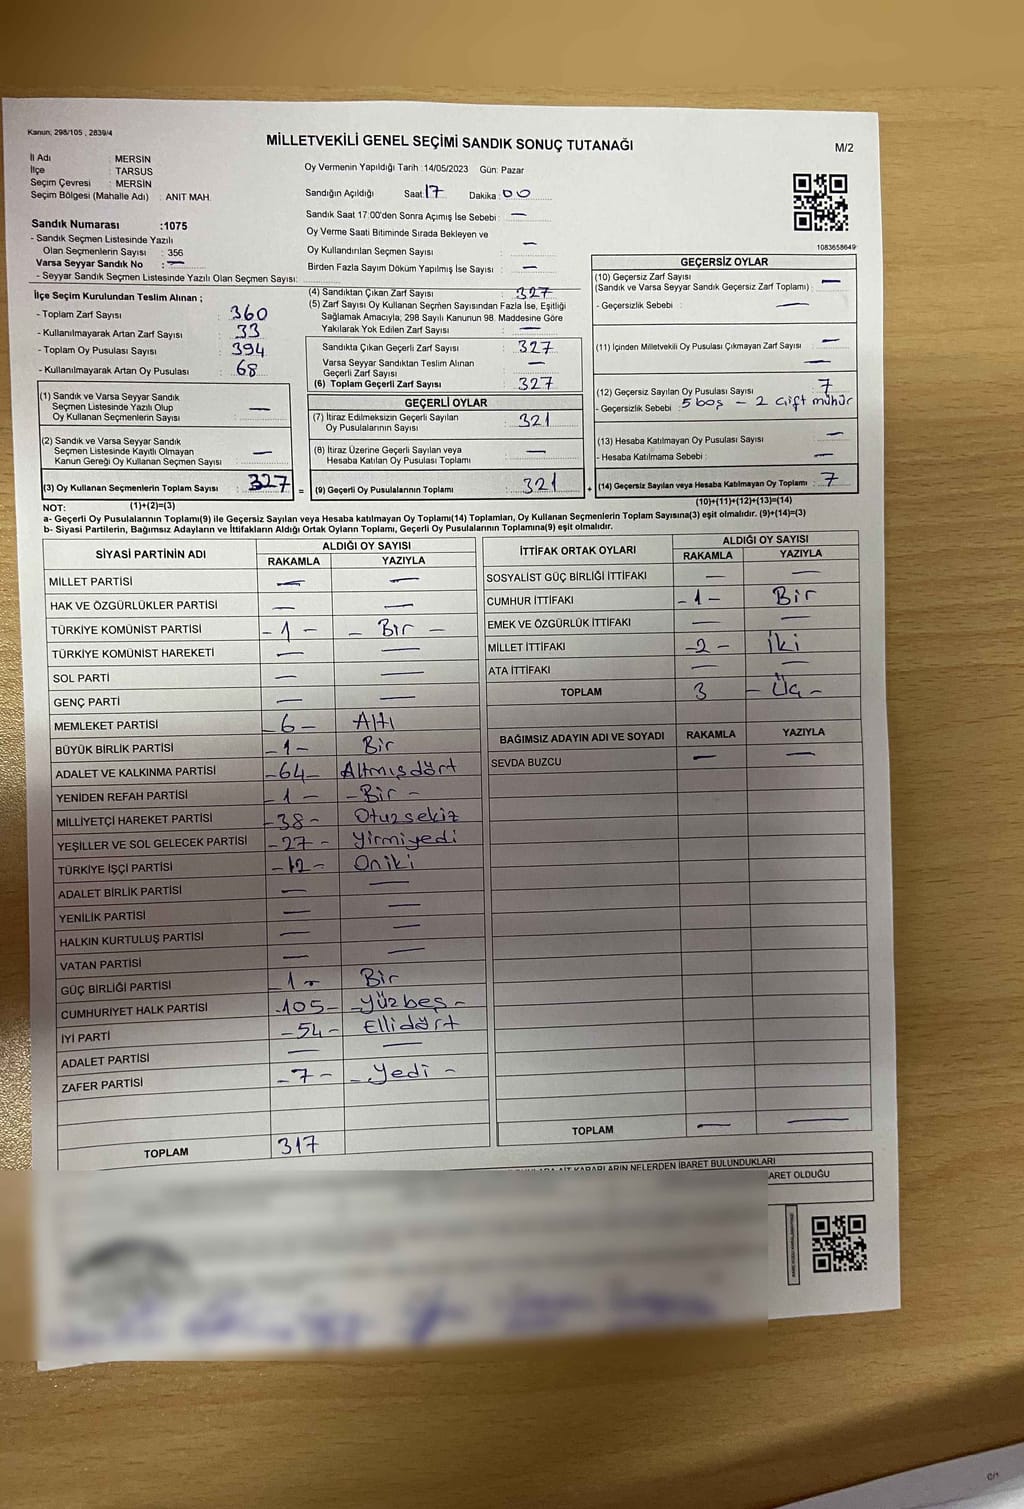 Kanun; 298/105 , 2839/4
MİLLETVEKİLİ GENEL SEÇİMİ SANDIK SONUÇ TUTANAĞI
M/2
İl Adı : MERSİN
İlçe : TARSUS
Seçim Çevresi : MERSİN
Seçim Bölgesi (Mahalle Adı) : ANIT MAH.
Oy Vermenin Yapıldığı Tarih :14/05/2023 Gün: Pazar
Sandığın Açıldığı Saat: 17 Dakika : 00
Sandık Saat 17:00'den Sonra Açımış İse Sebebi : —
Oy Verme Saati Bitiminde Sırada Bekleyen ve
Oy Kullandırılan Seçmen Sayısı : —
Birden Fazla Sayım Döküm Yapılmış İse Sayısı : —
1083658649
Sandık Numarası :1075
- Sandık Seçmen Listesinde Yazılı
Olan Seçmenlerin Sayısı : 356
Varsa Seyyar Sandık No : —
- Seyyar Sandık Seçmen Listesinde Yazılı Olan Seçmen Sayısı:
İlçe Seçim Kurulundan Teslim Alınan ;
- Toplam Zarf Sayısı : 360
- Kullanılmayarak Artan Zarf Sayısı : 33
- Toplam Oy Pusulası Sayısı : 394
- Kullanılmayarak Artan Oy Pusulası : 68
(1) Sandık ve Varsa Seyyar Sandık
Seçmen Listesinde Yazılı Olup
Oy Kullanan Seçmenlerin Sayısı : —
(2) Sandık ve Varsa Seyyar Sandık
Seçmen Listesinde Kayıtlı Olmayan
Kanun Gereği Oy Kullanan Seçmen Sayısı : —
(3) Oy Kullanan Seçmenlerin Toplam Sayısı : 327 =
(4) Sandıktan Çıkan Zarf Sayısı : 327
(5) Zarf Sayısı Oy Kullanan Seçmen Sayısından Fazla İse, Eşitliği
Sağlamak Amacıyla; 298 Sayılı Kanunun 98. Maddesine Göre
Yakılarak Yok Edilen Zarf Sayısı : —
Sandıkta Çıkan Geçerli Zarf Sayısı : 327
Varsa Seyyar Sandıktan Teslim Alınan
Geçerli Zarf Sayısı : —
(6) Toplam Geçerli Zarf Sayısı : 327
GEÇERLİ OYLAR
(7) İtiraz Edilmeksizin Geçerli Sayılan
Oy Pusulalarının Sayısı : 321
(8) İtiraz Üzerine Geçerli Sayılan veya
Hesaba Katılan Oy Pusulası Toplamı : —
(9) Geçerli Oy Pusulalarının Toplamı : 321 +
GEÇERSİZ OYLAR
(10) Geçersiz Zarf Sayısı
(Sandık ve Varsa Seyyar Sandık Geçersiz Zarf Toplamı) : —
- Geçersizlik Sebebi : —
(11) İçinden Milletvekili Oy Pusulası Çıkmayan Zarf Sayısı : —
—
(12) Geçersiz Sayılan Oy Pusulası Sayısı : 7
- Geçersizlik Sebebi : 5 boş - 2 çift mühür
(13) Hesaba Katılmayan Oy Pusulası Sayısı : —
- Hesaba Katılmama Sebebi : —
(14) Geçersiz Sayılan veya Hesaba Katılmayan Oy Toplamı : 7
NOT: (1)+(2)=(3)
(10)+(11)+(12)+(13)=(14)
a- Geçerli Oy Pusulalarının Toplamı(9) ile Geçersiz Sayılan veya Hesaba katılmayan Oy Toplamı(14) Toplamları, Oy Kullanan Seçmenlerin Toplam Sayısına(3) eşit olmalıdır. (9)+(14)=(3)
b- Siyasi Partilerin, Bağımsız Adayların ve İttifakların Aldığı Ortak Oyların Toplamı, Geçerli Oy Pusulalarının Toplamına(9) eşit olmalıdır.
SİYASİ PARTİNİN ADI ALDIĞI OY SAYISI
RAKAMLA YAZIYLA
MİLLET PARTİSİ — —
HAK VE ÖZGÜRLÜKLER PARTİSİ — —
TÜRKİYE KOMÜNİST PARTİSİ - 1 - - Bir -
TÜRKİYE KOMÜNİST HAREKETİ — —
SOL PARTİ — —
GENÇ PARTİ — —
MEMLEKET PARTİSİ - 6 - Altı
BÜYÜK BİRLİK PARTİSİ - 1 - Bir
ADALET VE KALKINMA PARTİSİ - 64 - Altmışdört
YENİDEN REFAH PARTİSİ - 1 - - Bir -
MİLLİYETÇİ HAREKET PARTİSİ - 38 - Otuzsekiz
YEŞİLLER VE SOL GELECEK PARTİSİ - 27 - Yirmiyedi
TÜRKİYE İŞÇİ PARTİSİ - 12 - Oniki
ADALET BİRLİK PARTİSİ — —
YENİLİK PARTİSİ — —
HALKIN KURTULUŞ PARTİSİ — —
VATAN PARTİSİ — —
GÜÇ BİRLİĞİ PARTİSİ - 1 - Bir
CUMHURİYET HALK PARTİSİ - 105 - - Yüzbeş -
İYİ PARTİ - 54 - Ellidört
ADALET PARTİSİ — —
ZAFER PARTİSİ - 7 - - Yedi -
TOPLAM 317
İTTİFAK ORTAK OYLARI ALDIĞI OY SAYISI
RAKAMLA YAZIYLA
SOSYALİST GÜÇ BİRLİĞİ İTTİFAKI — —
CUMHUR İTTİFAKI - 1 - Bir
EMEK VE ÖZGÜRLÜK İTTİFAKI — —
MİLLET İTTİFAKI - 2 - İki
ATA İTTİFAKI — —
TOPLAM 3 - Üç -
BAĞIMSIZ ADAYIN ADI VE SOYADI RAKAMLA YAZIYLA
SEVDA BUZCU — —
TOPLAM — —
KARARLARIN NELERDEN İBARET BULUNDUKLARI
ARET OLDUĞU